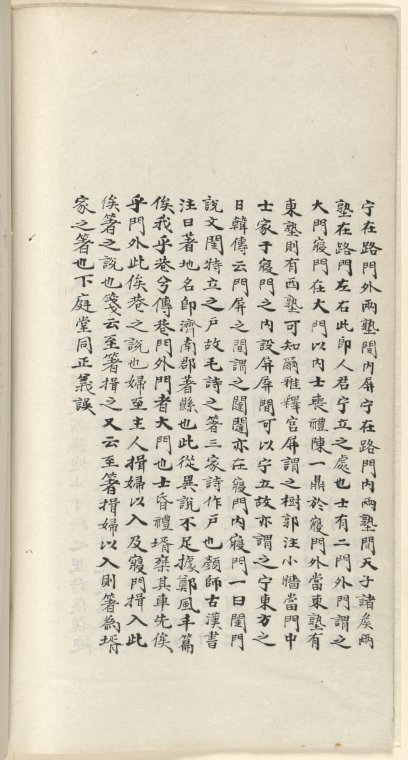 宁在路門外兩塾間內屏宁在路門內兩塾間天子諸矦兩
塾在路門左右此即人君宁立之處也士有二門外門謂之
大門寢門在大門以內士喪禮陳一鼎於寢門外當東塾有
東塾則有西塾可知爾雅釋宮屏謂之樹郭注小牆當門中
士家于寢門之內設屏屏間可以宁立故亦謂之宁東方之
日韓傳云門屏之間謂之闥闥亦在寢門內寢門一曰閨門
說文閨特立之戶故毛詩之箸三家詩作戶也顏師古漢書
注曰著地名即濟南郡著縣也此從異說不足據鄭風丰篇
俟我乎巷兮傳巷門外門者大門也士昏禮壻椉其車先俟
乎門外此俟巷之說也婦至主人揖婦以入及寢門揖入此
俟箸之說也箋云至箸揖之又云至箸揖婦以入則箸為壻
家之箸也下庭堂同正義誤